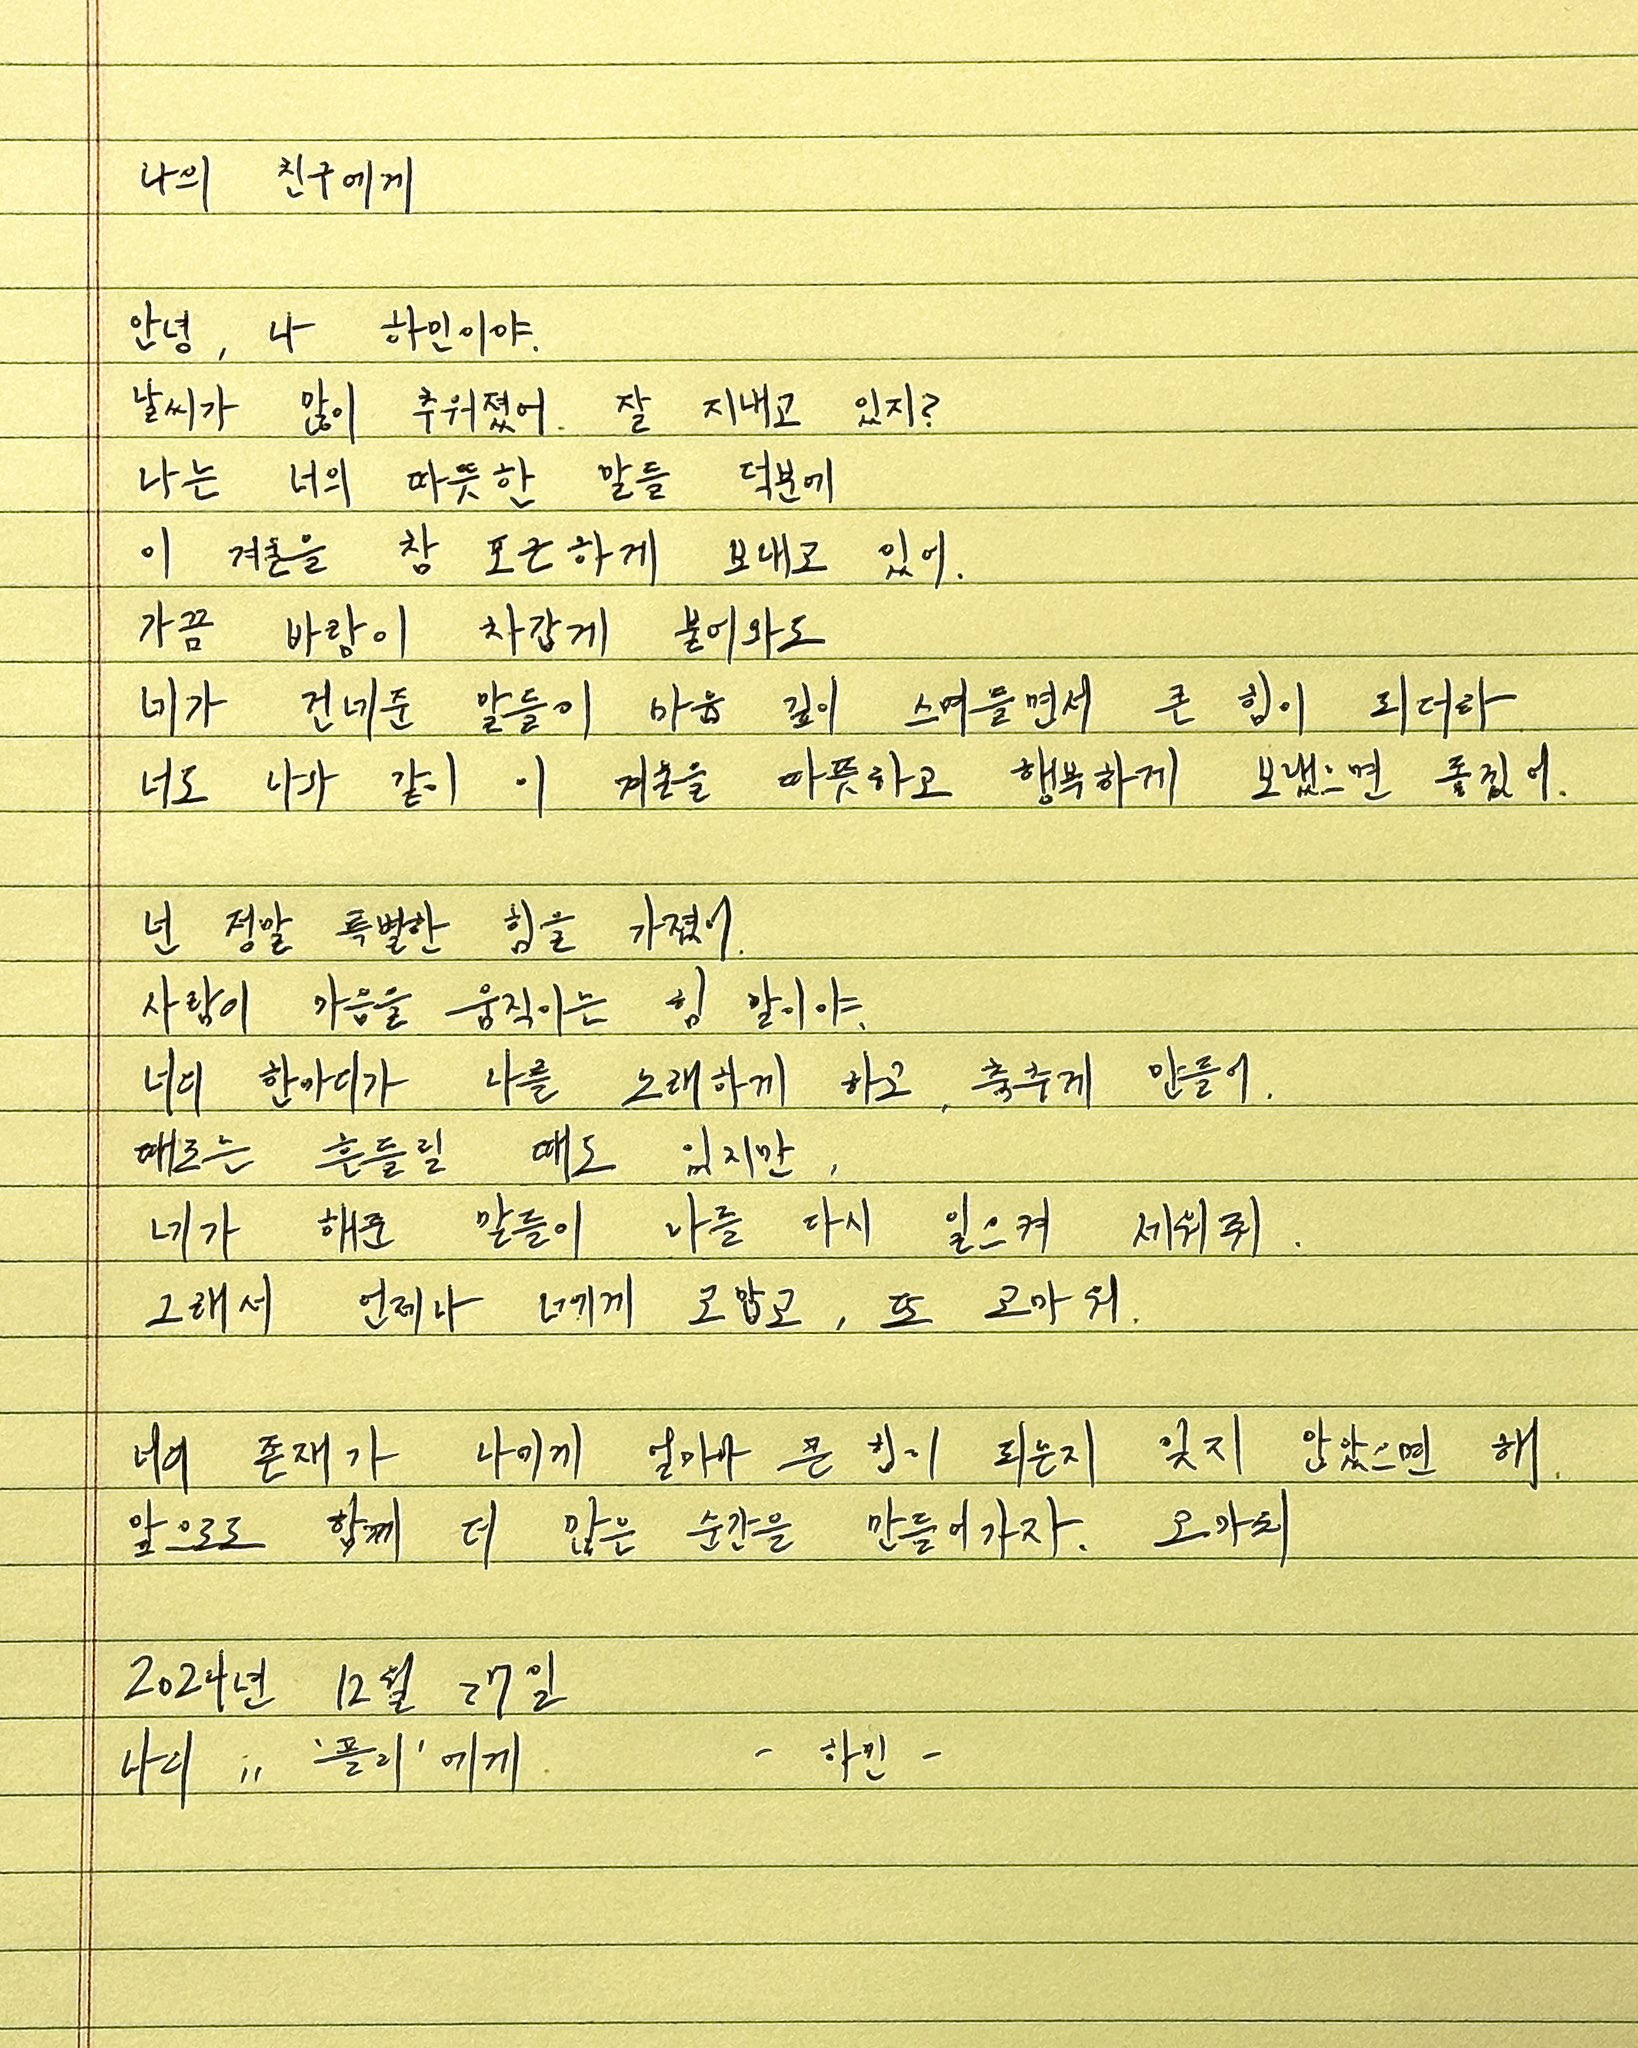 나의 친구에게
안녕, 나 하민이야.
날씨가 많이 추워졌어. 잘 지내고 있지?
나는 너의 따뜻한 말들 덕분에
이 겨울을 참 포근하게 보내고 있어.
가끔 바람이 차갑게 불어와도
네가 건네준 말들이 마음 깊이 스며들면서 큰 힘이 되더라
너도 나와 같이 이 겨울을 따뜻하고 행복하게 보냈으면 좋겠어.
넌 정말 특별한 힘을 가졌어.
사람의 마음을 움직이는 힘 말이야.
너의 한마디가 나를 노래하게 하고, 춤추게 만들어.
때로는 흔들릴 때도 있지만,
네가 해준 말들이 나를 다시 일으켜 세워줘.
그래서 언제나 너에게 고맙고, 또 고마워.
너의 존재가 나에게 얼마나 큰 힘이 되는지 잊지 않았으면 해.
앞으로도 함께 더 많은 순간을 만들어가자. 고마워
2024년 12월 27일
나의 '플리'에게 - 하민 -